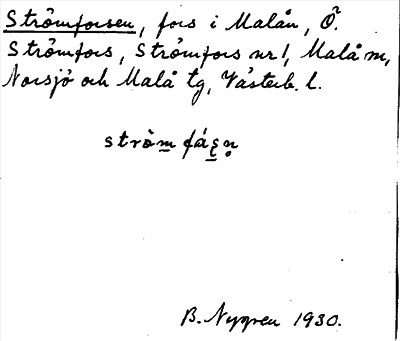 Strömforsen, fors i Malån, Ö.
Strömfors, Strömfors nr 1, Malå m,
Norsjö och Malå tg, Västerb. l.
B. Nygren 1930.